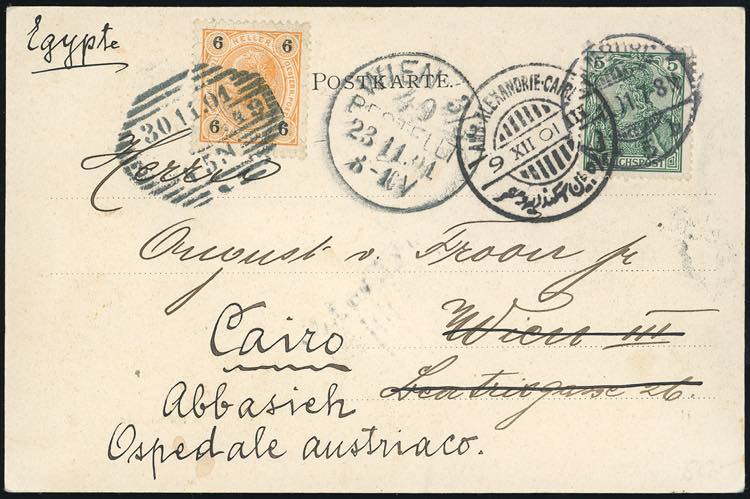 Egypte
6 HELLER 6
6 6
POSTKARTE.
WIEN
49
BESTELLT
23.11.01
30.11.01
AMB. ALEXANDRIE-CAIRE
9 XII 01
5 5
REICHSPOST
Herrn
August v. Froon jr
Wien III
Cairo
Abbasieh
Ospedale austriaco.